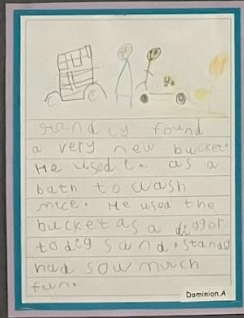 Standly found
a very new bucket.
He used it as a
bath to wash
mice. He used the
bucket as a diggor
to dig sand. stand
had sow much
fun.
Dominion A